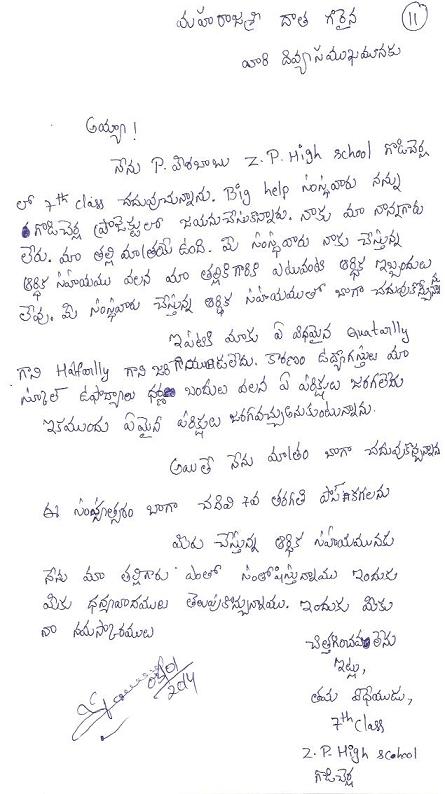 11
మహారాజశ్రీ దాత గారైన
వారి దివ్యసముఖమునకు
అయ్యా!
నేను P. Z.P. High school గొడిచెర్ల
లో 7th class చదువుచున్నాను. Big help సంస్థవారు నన్ను
గొడిచెర్ల ప్రాజెక్టులో జయనుచేసుకొన్నారు. నాకు మా నాన్నగారు
లేరు. మా తల్లి మాత్రమే ఉంది. మీ సంస్థవారు నాకు చేస్తున్న
ఆర్థిక సహాయము వలన మా తల్లికిగారికి ఎటువంటి ఆర్థిక ఇబ్బందులు
లేవు. మీ సంస్థవారు చేస్తున్న ఆర్థిక సహాయముతో బాగా
ఇప్పటికి మాకు ఏ విధమైన Quatarlly
గాని Halfarlly గాని కారణం ఉద్యోగస్తులు మా
స్కూల్ ఉపాధ్యాలు బందులు వలన ఏ పరిక్షలు జరగలేదు
ఇకముందు ఏమైన పరిక్షలు జరగవచ్చుఅనుకుంటున్నాను.
అయితే నేను మాత్రం బాగా చదువుకొన్నాను
ఈ సంవత్సరం బాగా చదివి 7వ తరగతి పాస్ కాగలను
మీరు చేస్తున్న ఆర్థిక సహాయమునకు
నేను మా తల్లిగారు ఎంతో సంతోషిస్తున్నాము ఇందుకు
మీకు ధన్యవాదములు తెలుపుకొచ్చున్నాము. ఇందుకు మీకు
నా నమస్కారములు
చిత్తగించవలెను
ఇట్లు,
తమ విధేయుడు,
7th class
Z.P. High scahool
గొడిచెర్ల
2014